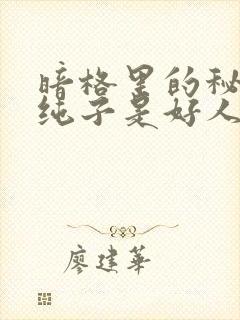 暗格里的秘
纯子是好人
廖建華